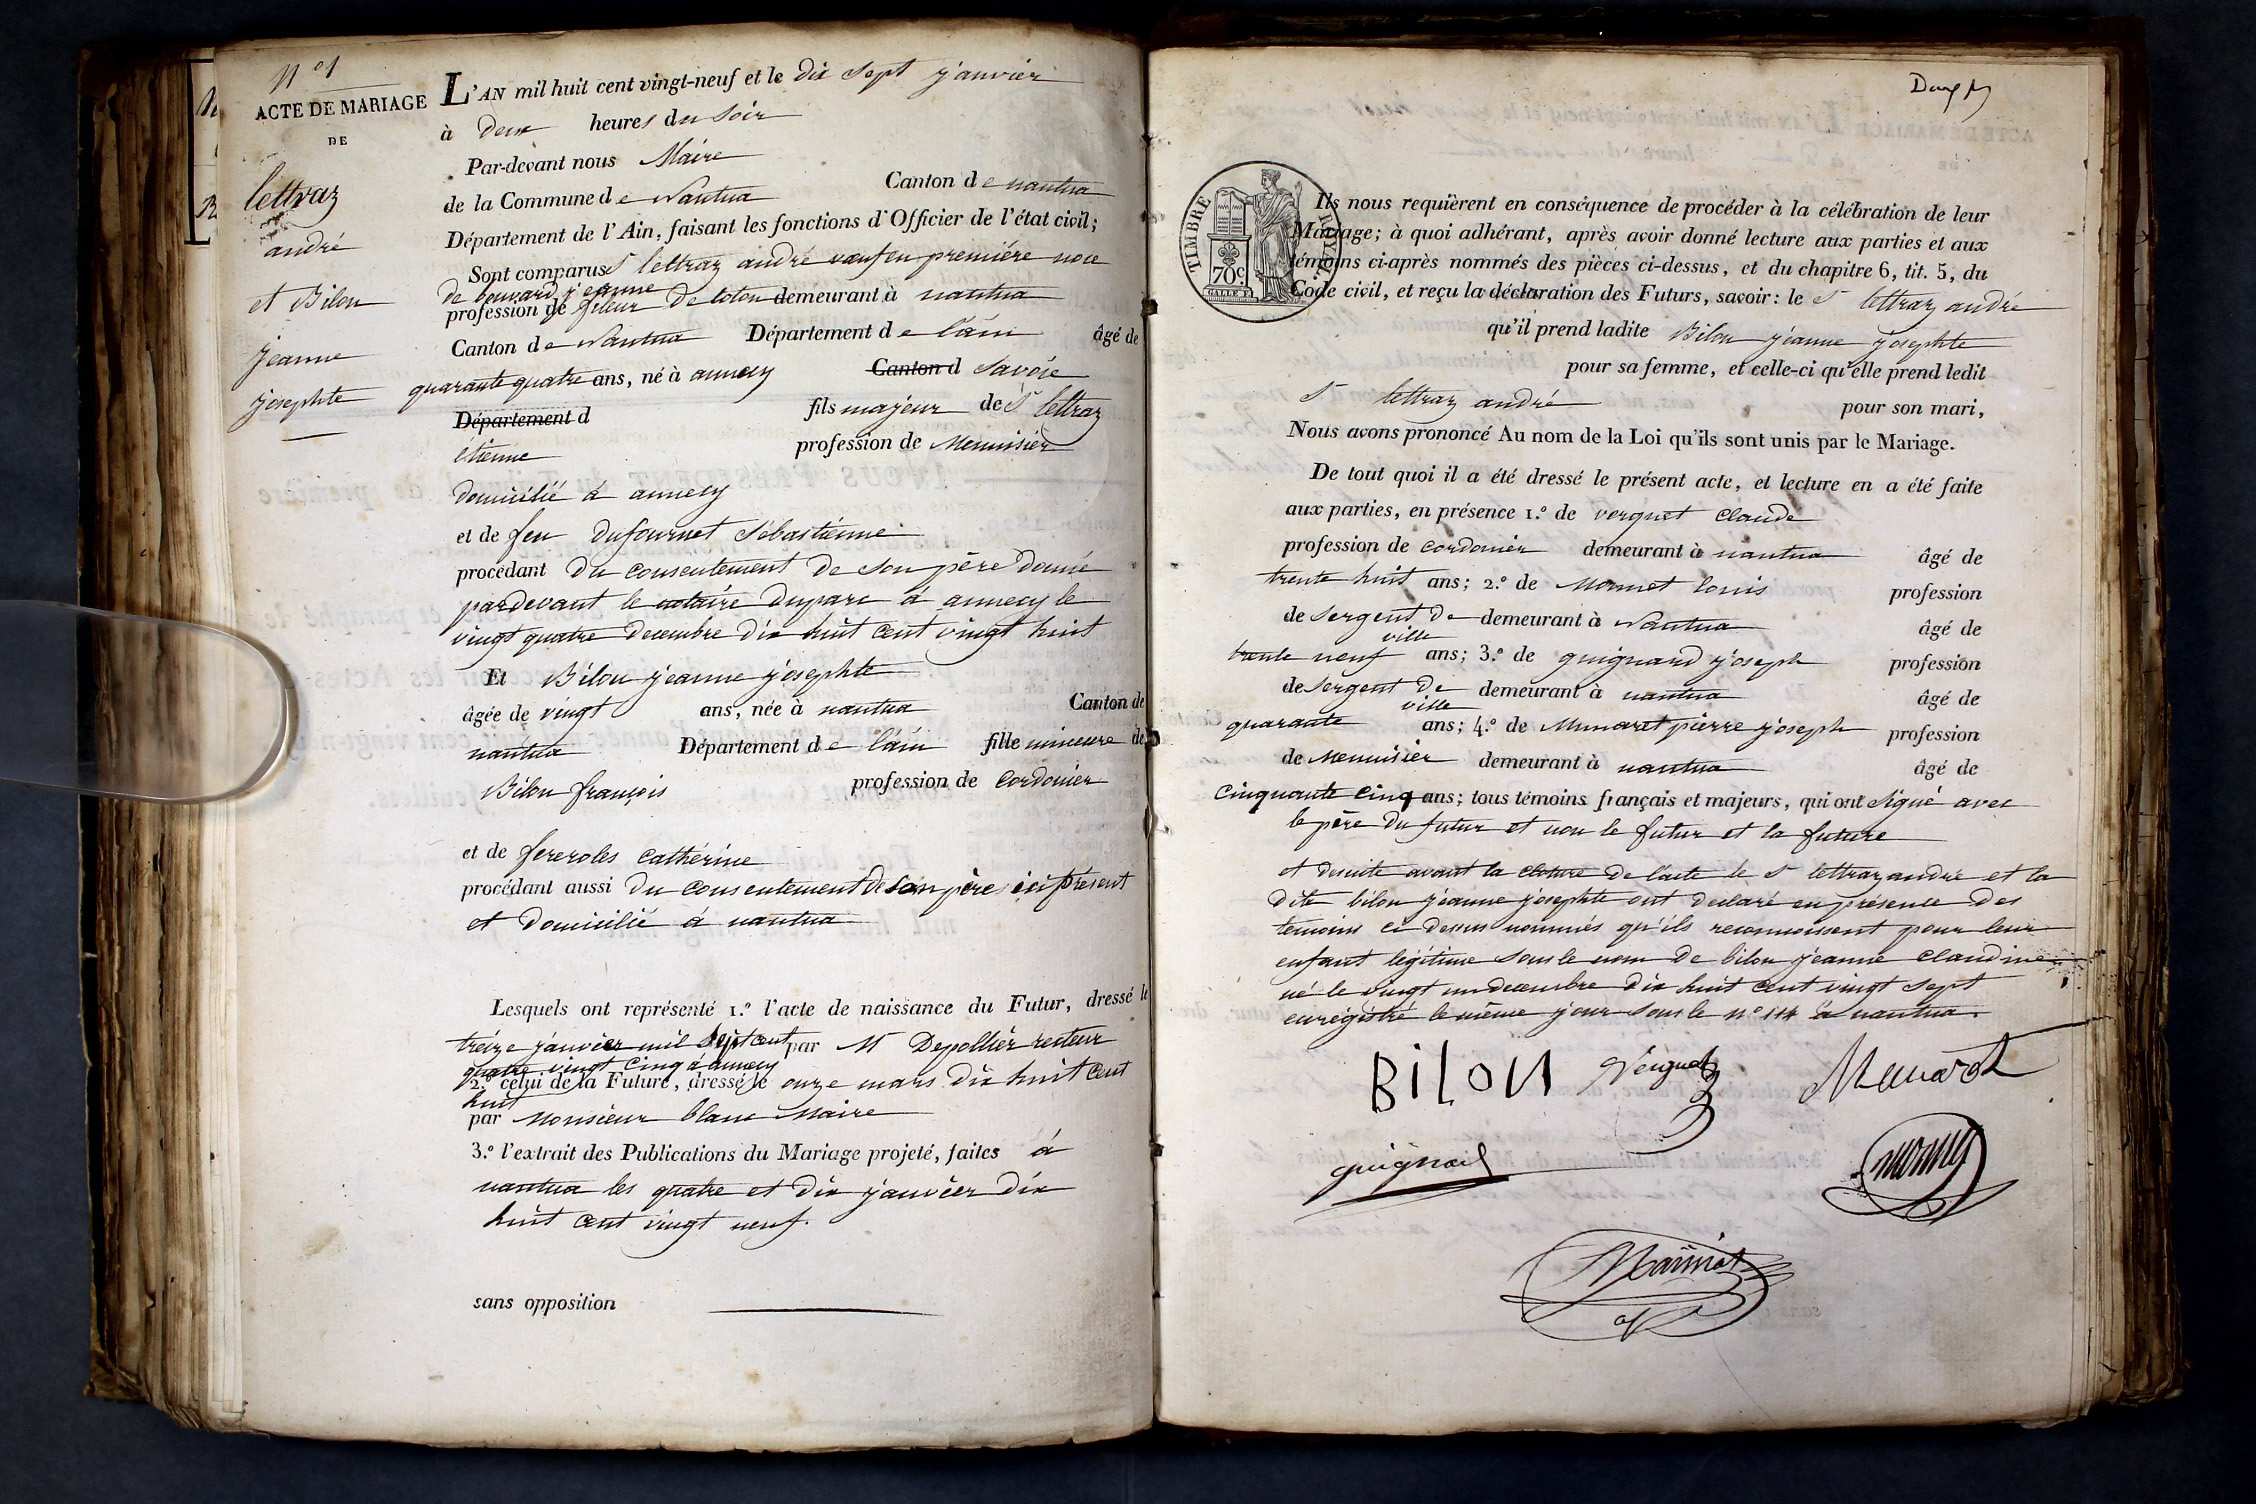 N° 1
ACTE DE MARIAGE
DE
lettraz
andré
et Bilon
jeanne
josephte
L'AN mil huit cent vingt-neuf et le dix sept janvier
à deux heures du soir
Par-devant nous Maire
de la Commune de Nantua Canton de nantua
Département de l'Ain, faisant les fonctions d'Officier de l'état civil;
Sont comparus Sr lettraz andré veuf en première noce
de bouvard jeanne
profession de fileur de coton demeurant à nantua
Canton de Nantua Département de l'ain âgé de
quarante quatre ans, né à annecy Canton d Savoie
Département d fils majeur de Sr lettraz
étienne profession de Menuisier
domicilié à annecy
et de feu dufournet Sébastienne
procédant du consentement de son père donné
pardevant le notaire duparc à annecy le
vingt quatre decembre dix huit cent vingt huit
Et Bilon jeanne josephte
âgée de vingt ans, née à nantua Canton de
nantua Département de l'ain fille mineure de
Bilon françois profession de Cordonier
et de fereroles Cathérine
procédant aussi du consentement de son père ici présent
et domicilié à nantua
Lesquels ont représenté 1.° l'acte de naissance du Futur, dressé le
treize janvier mil sept cent par Mr Depollier recteur
quatre vingt cinq à annecy
2.° celui de la Future, dressé le onze mars dix huit cent
huit
par Monsieur blanc Maire
3.° l'extrait des Publications du Mariage projeté, faites à
nantua les quatre et dix janvier dix
huit cent vingt neuf.
sans opposition
TIMBRE ROYAL
70 c.
Ils nous requièrent en conséquence de procéder à la célébration de leur
Mariage; à quoi adhérant, après avoir donné lecture aux parties et aux
témoins ci-après nommés des pièces ci-dessus, et du chapitre 6, tit. 5, du
Code civil, et reçu la déclaration des Futurs, savoir: le Sr lettraz andré
qu'il prend ladite Bilon jeanne josephte
pour sa femme, et celle-ci qu'elle prend ledit
Sr lettraz andré pour son mari,
Nous avons prononcé Au nom de la Loi qu'ils sont unis par le Mariage.
De tout quoi il a été dressé le présent acte, et lecture en a été faite
aux parties, en présence 1.° de verguet Claude
profession de cordonier demeurant à nantua âgé de
trente huit ans; 2.° de Monnet louis profession
de Sergent de ville demeurant à Nantua âgé de
trente neuf ans; 3.° de guignard joseph profession
de Sergent de ville demeurant à nantua âgé de
quarante ans; 4.° de Munaret pierre joseph profession
de Menuisier demeurant à nantua âgé de
Cinquante cinq ans; tous témoins français et majeurs, qui ont signé avec
le père du futur et non le futur et la future
et desuite avant la cloture de l'acte le Sr lettraz andré et la
dite bilon jeanne josephte ont declaré en présence des
temoins ci dessus nommés qu'ils reconnoissent pour leur
enfant légitime sous le nom de bilon jeanne Claudine
né le vingt un decembre dix huit cent vingt sept
enregistré le même jour sous le n° 114 à nantua.
BiLON Verguet Munaret
guignard
monnet